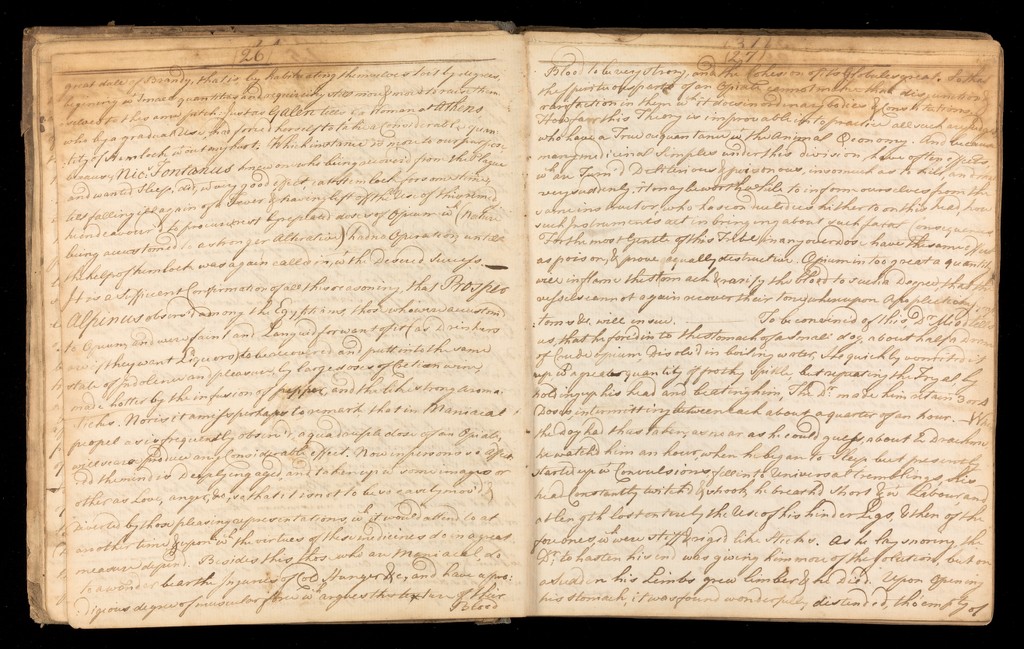 26
quat dose of Brandy, that is by habituating themselves to it by degrees,
beginning wth small quantities and requiring still more & more to raise them
selves to the same pitch; just as Galen tells a Woman at Athens
who by a gradual use, had forced herself to take a Considerable quan
tity of Hemlock, without any hurt. Which instance is more to our purpose
because, Nic: Fontanus knew one who being recovered from the Plague
and wanted Sleep, did, wth very good effect, eat Hemlock for some time,
till falling ill again of a Fever & having left off the Use of this remedy
he endeavour'd to procure rest by repeated doses of Opium, wch (Nature
being accustomed to a stronger Alterative) had no Operation, untill
the help of hemlock was again called in, wth the Desired Success.
It is a Sufficient Confirmation of all this reasoning, that Prosper
Alpinus observ'd among the Egyptians, those who were accustomd
to Opium and were faint and Languid for want of it (as Drinkers
are if they want Liquors) to be recovered and putt into the same
state of indolence and pleasure, by large doses of Cretian wine,
made hotter by the infusion of pepper, and the like strong Aroma
ticks. Nor is it amiss perhaps to remark that in Maniacal
peopel as is frequently observ'd, a quadruple dose of an Opiate
will scarce produce any Considerable effect. Now in persons so affect
ed the mind is Deeply engaged and taken up wth some images or
other as Love, anger, &c, so that it is not to be so easily mov'd, or
Diverted by those pleasing representations, wch it would attend to at
another time & upon wch the virtues of these medicines do in a great
measure depend. Besides this, those who are Maniacal do
to a wonder bear the Injuries of Cold, Hunger &c, and have a pro:
digious degree of muscular force wch argues the texture of their
Blood
27
Blood to be very strong, and the Cohesion of its Globules great. So that
the spirituous parts of an Opiate cannot make that disjunction &
rarefaction in them wch it does in ordinary bodies & Constitutions
How far this Theory is improvable into practice all such are judges
who have a True acquaintance wth the Animal Oeconomy. And because
many medicinal Simples under this division, have often effects
wch are Term'd Deleterious & poisonous, insomuch as to kill, and that
very suddenly, it may be worth while to inform ourselves from the
same instructor, who has conducted us hitherto on this head, how
such Instruments act in bringing about such fatal Consequences
For the most Gentle of this Tribe in any overdose have the same effects
as poison, & prove equally destructive. Opium in too great a quantity
will inflame the stomach & rarify the blood to such a Degree that the
vessels cannot again recover their tone, whereupon Apoplectick Symp
toms &c. will insue. To be convinced of this Dr. Mead tells
us, that he forced into the stomach of a small dog about half a Dram
of Crude Opium Dissolv'd in boiling water, he quickly vomited it
up wth a great quantity of frothy spittle but repeating the Tryal by
holding up his head and beating him, The Dr. made him retain 3 or 4
Doses intermitting between each about a quarter of an hour. When
the dog had thus taken, as near as he could guess, about 2 Drachms
he watch'd him an hour, when he began to Sleep but presently
started up wth Convulsions, fell into Universal Tremblings, his
head Constantly twitch'd & shook, he breath'd short & wth Labour, and
at length lost entirely the Use of his hinder Legs, & then of the
fore ones, wch were stiff & rigid like Sticks. As he lay snoring the
Dr., to hasten his end was giving him more of the solution, but on
a sudden his Limbs grew limber & he Died. Upon Opening
his stomach, it was found wonderfully distended, tho' empty of